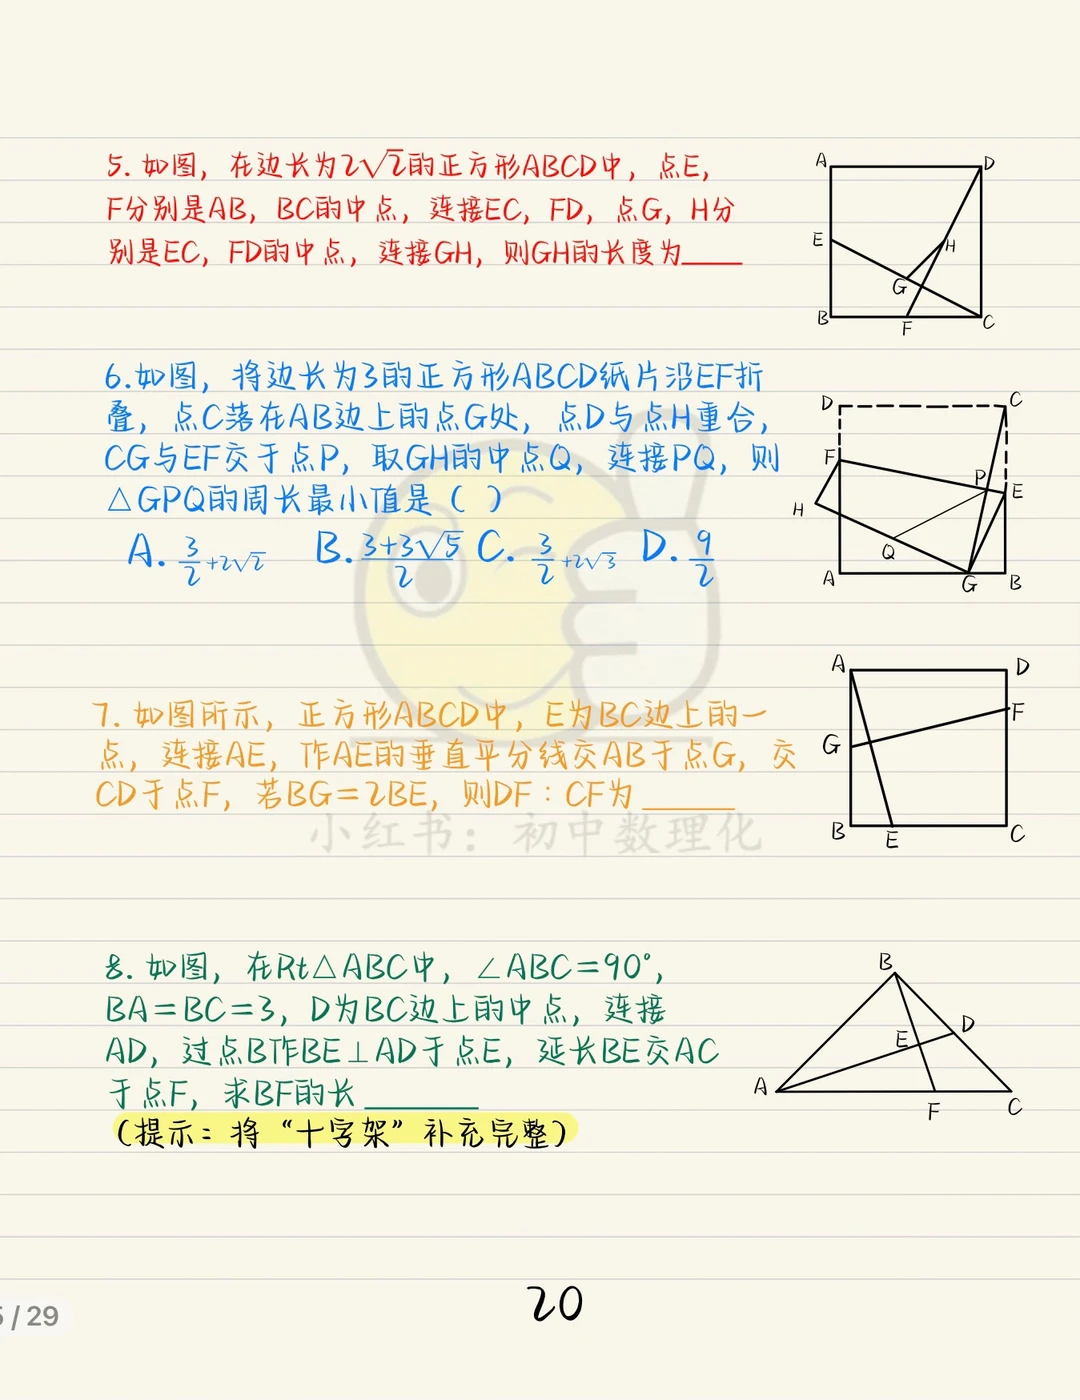 5. 如图，在边长为2√2的正方形ABCD中，点E，
F分别是AB，BC的中点，连接EC，FD，点G，H分
别是EC，FD的中点，连接GH，则GH的长度为____
A
D
E
H
G
B
F
C
6.如图，将边长为3的正方形ABCD纸片沿EF折
叠，点C落在AB边上的点G处，点D与点H重合，
CG与EF交于点P，取GH的中点Q，连接PQ，则
△GPQ的周长最小值是（ ）
A. 3/2+2√2 B. (3+3√5)/2 C. 3/2+2√3 D. 9/2
D
C
F
P
E
H
Q
A
G
B
7. 如图所示，正方形ABCD中，E为BC边上的一
点，连接AE，作AE的垂直平分线交AB于点G，交
CD于点F，若BG=2BE，则DF：CF为______
A
D
F
G
B
E
C
小红书：初中数理化
8. 如图，在Rt△ABC中，∠ABC=90°，
BA=BC=3，D为BC边上的中点，连接
AD，过点B作BE⊥AD于点E，延长BE交AC
于点F，求BF的长______
（提示：将“十字架”补充完整）
B
D
E
A
F
C
20
5/29